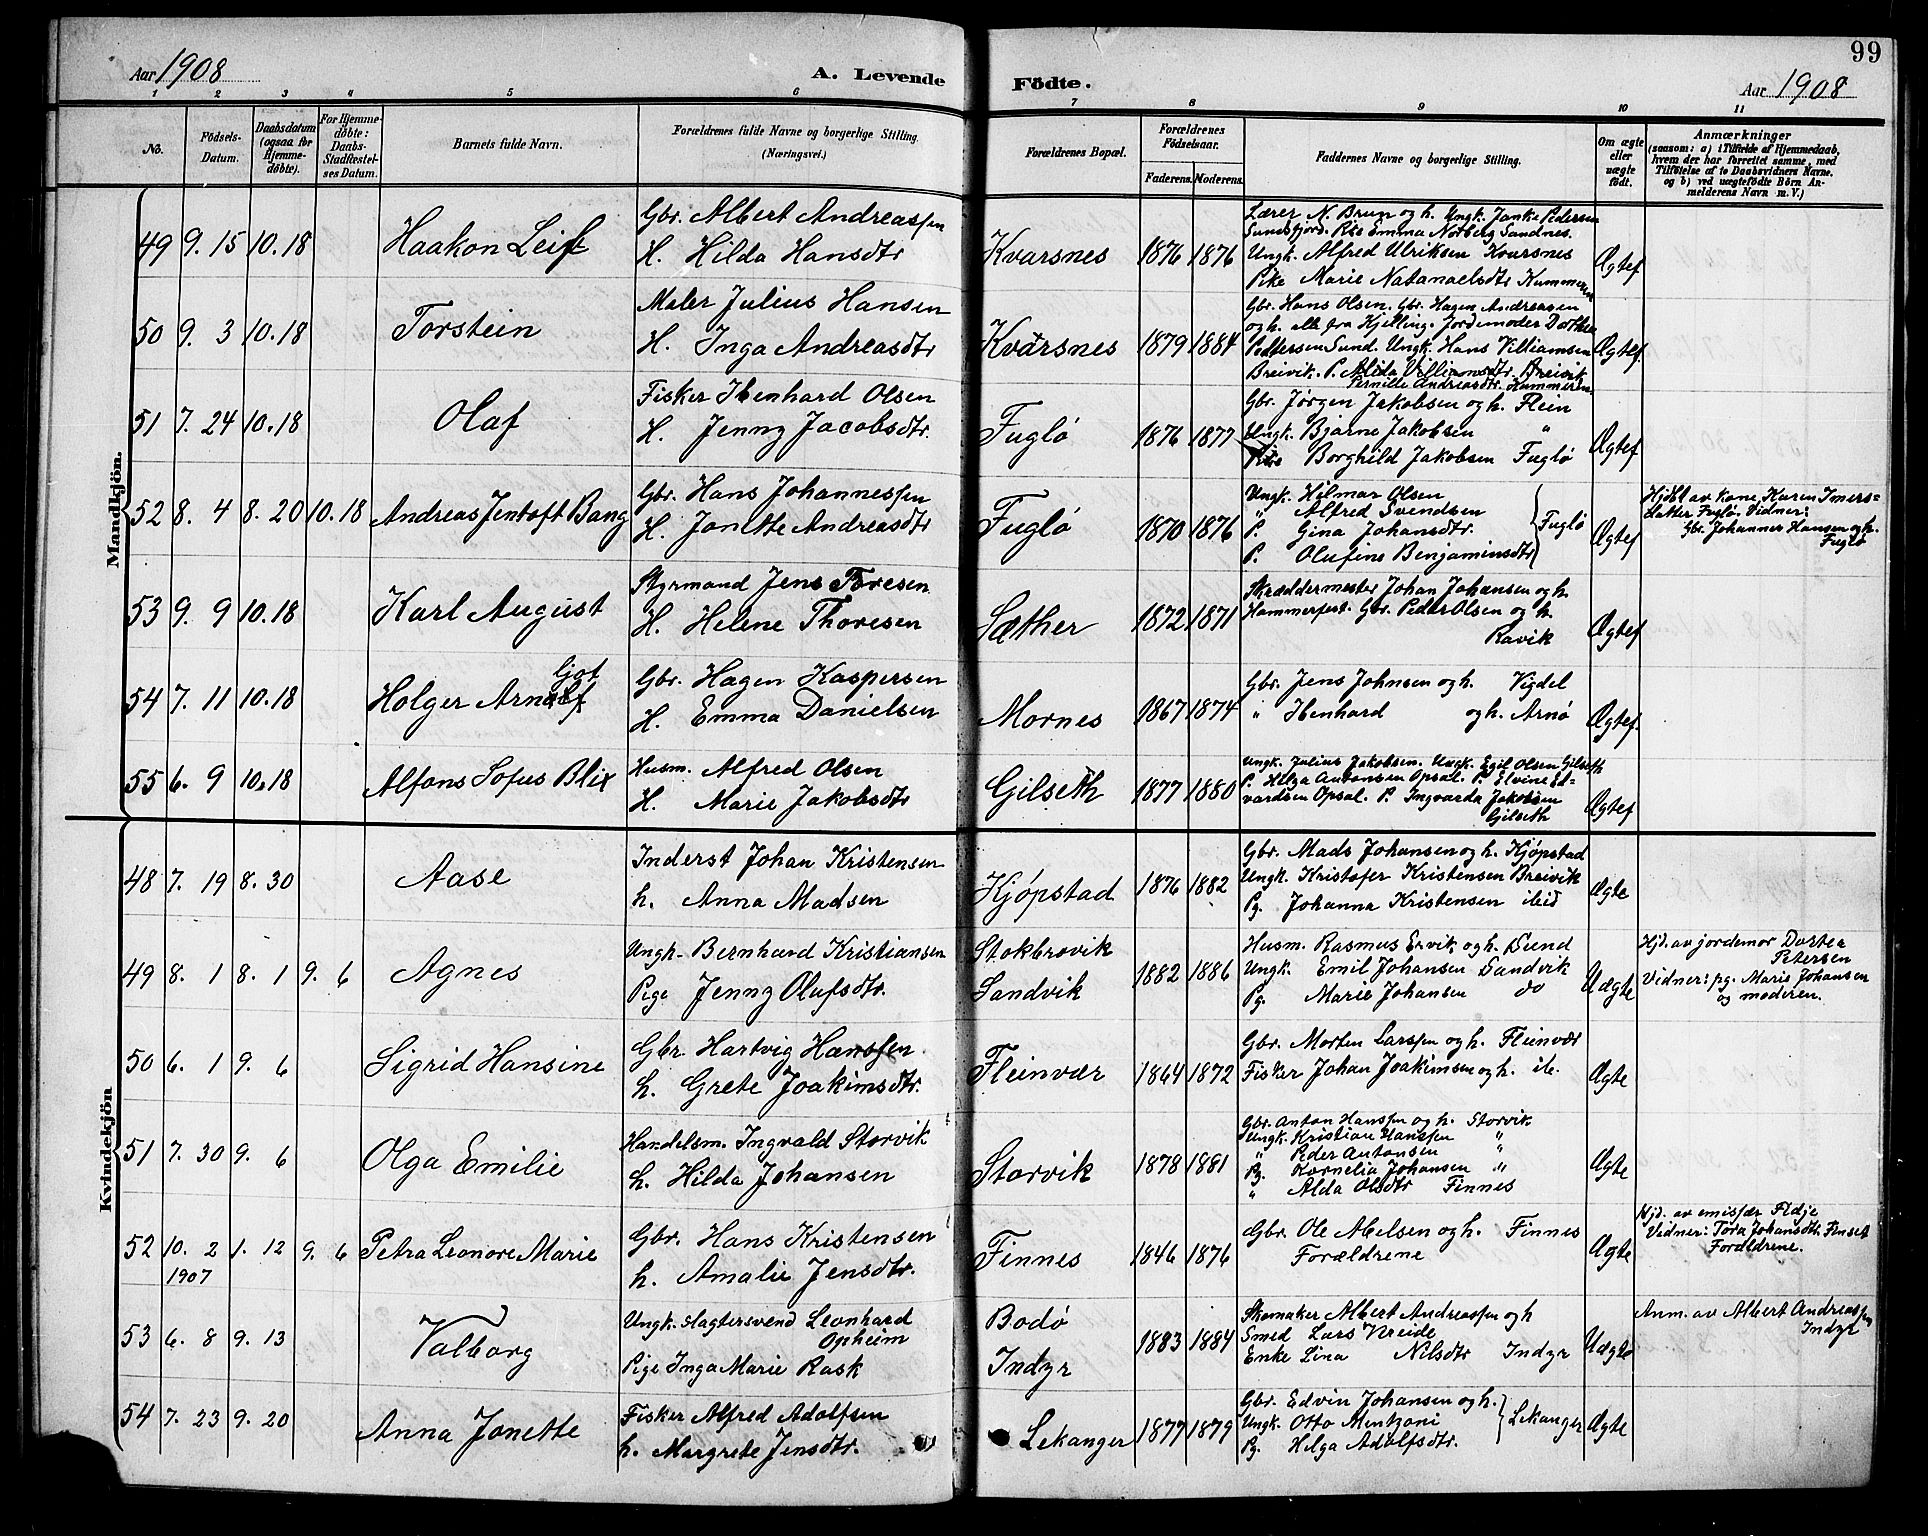 99
Aar 1908 A. Levende Födte. Aar 1908
1 2 3 4 5 6 7 8 9 10 11
No. Födsels-Datum. Daabsdatum (ogsaa for Hjemme-döbte). For Hjemme-döbte: Daabs-Stadfæstel-ses Datum. Barnets fulde Navn. Forældrenes fulde Navne og borgerlige Stilling. (Næringsvei.) Forældrenes Bopæl. Forældrenes Födselsaar. Faderens. Moderens. Faddernes Navne og borgerlige Stilling. Om ægte eller uægte födt. Anmærkninger (saasom: a) i Tilfælde af Hjemmedaab, hvem der har forrettet samme, med Tilföielse af to Daabsvidners Navne, og b) ved uægtefödte Börn An-melderens Navn m. V.)
Mandkjön.
49 9. 15 10.18 Haakon Leif
Gbr. Albert Andreassen
H. Hilda Hansdtr
Kvarsnes 1876 1876
Lærer N. Brun og h. Ungk. Janke Pedersen
Sundsfjord. Pike Emma Norberg Sandnes.
Ungk. Alfred Ulriksen Kvarsnes
Pike Marie Natanaelsdtr Kummeren
Ægtef
50 9. 3 10.18 Torstein
Maler Julius Hansen
H. Inga Andreasdtr
Kvarsnes 1879 1884
Gbr. Hans Olsen. Gbr. Hagen Andreasen
og h. alle fra Kjelling. Jordemoder Dorthea
Pettersen Sund. Ungk. Hans Villiamsen
Breivik. P. Alida Villiamsdtr. Breivik
Pernille Andreasdtr. Kummeren
Ægtef.
51 7. 24 10.18 Olaf
Fisker Ibenhard Olsen
H. Jenny Jacobsdtr.
Fuglø 1876 1877
Gbr. Jørgen Jakobsen og h. Flein
Ungk. Bjarne Jakobsen "
Pike Borghild Jakobsen Fuglø
Ægtef
52 8. 4 8. 20 10.18 Andreas Jentoft Bang
Gbr. Hans Johannessen
H. Jonette Andreasdtr
Fuglø 1870 1876
Ungk. Hilmar Olsen
" Alfred Svendsen
P. Gina Johansdtr.
P. Olufine Benjaminsdtr
Fuglø
Ægtef
Hjdbt av kone Karen Imers=
datter Fuglø. Vidner:
Gbr. Johannes Hansen og h.
Fuglø
53 9. 9 10.18 Karl August
Styrmand Jens Toresen
H. Helene Thoresen
Sæther 1872 1871
Skræddermester Johan Johansen og h.
Hammerfest. Gbr. Peder Olsen og h.
Ravik
Ægtef
54 7. 11 10.18 Holger Arn
Gbr. Hagen Kaspersen
H. Emma Danielsen
Mornes 1867 1874
Gbr. Jens Johnsen og h. Vigdel
" Ibenhard og h. Arnø
Ægtef.
55 6. 9 10.18 Alfons Sofus Blix
Husm. Alfred Olsen
H. Marie Jakobsdtr
Gilseth 1877 1880
Ungk. Julius Jakobsen. Ungk. Egil Olsen Gilseth
P. Helga Antonsen Opsal. P. Elvine Ed=
vardsen Opsal. P. Ingvarda Jakobsen
Gilseth
Ægtef
Kvindekjön
48 7. 19 8. 30 Aase
Inderst Johan Kristensen
h. Anna Madsen
Kjøpstad 1876 1882
Gbr. Mads Johansen og h. Kjøpstad
Ungk. Kristofer Kristensen Breivik
Pg. Johanna Kristensen ibid
Ægte
49 8. 1 8. 1 9. 6 Agnes
Ungk. Bernhard Kristiansen
Pige Jenny Olufsdtr.
Sandvik 1882 1886
Husm. Rasmus Ervik og h. Sund
Ungk. Emil Johansen Sandvik
Pg. Marie Johansen do
Uægte
Hjd. av jordemor Dortea
Petersen
Vidner: pg. Marie Johansen
og moderen.
50 6. 1 9. 6 Sigrid Hansine
Gbr. Hartvig Hanssen
h. Grete Joakimsdtr.
Fleinvær 1864 1872
Gbr. Morten Larssen og h. Fleinvær
Fisker Johan Joakimsen og h. ib.
Ægte
51 7. 30 9. 6 Olga Emilie
Handelsm. Ingvald Storvik
h. Hilda Johansen
Storvik 1878 1881
Gbr. Anton Hanssen og h. Storvik
Ungk. Kristian Hanssen "
" Peder Antonsen "
Pg. Kornelia Johansen "
" Alda Olsdtr Finnes
Ægte
52 10. 2 1907 1. 12 9. 6 Petra Leonore Marie
Gbr. Hans Kristensen
h. Amalie Jensdtr.
Finnes 1846 1876
Gbr. Ole Abelsen og h. Finnes
Forældrene
Ægte
Hjd. av emisfær Fldje
Vidner: Tora Johansdtr. Finset
Forældrene.
53 6. 8 9. 13 Valborg
Ungk. slagtersvend Leonhard
Opheim
Pige Inga Marie Rask
Bodø
Indyr 1883 1884
Skomaker Albert Andreassen og h
Smed Lars Kreide
Enke Lina Nilsdtr Indyr
Uægte
Anm. av Albert Andreassen
Indyr
54 7. 23 9. 20 Anna Jonette
Fisker Alfred Adolfsen
h. Margrete Jensdtr.
Lekanger 1877 1879
Gbr. Edvin Johansen og h.
Ungk. Otto Mentzoni
Pg. Helga Adolfsdtr.
Lekanger
Ægte